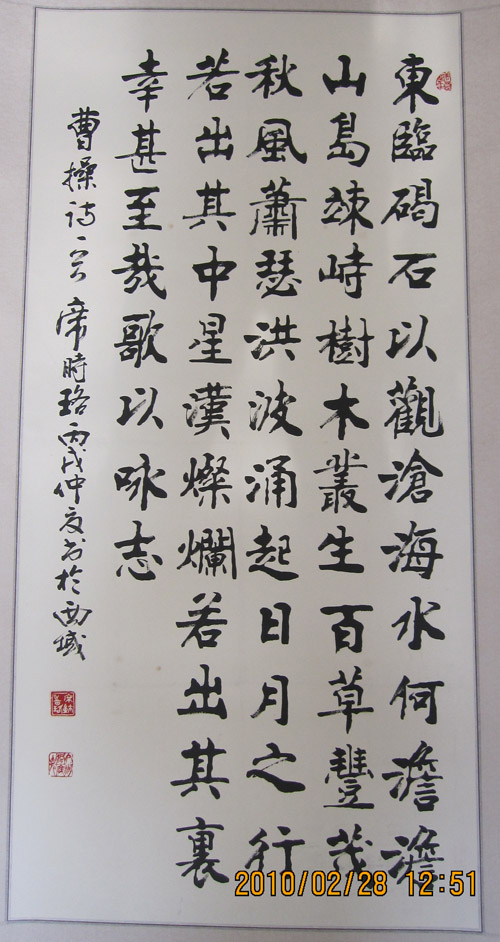 東臨碣石以觀滄海水何澹澹
山島竦峙樹木叢生百草豐茂
秋風蕭瑟洪波涌起日月之行
若出其中星漢燦爛若出其裏
幸甚至哉歌以咏志
曹操詩一首席時珞丙戌仲夏书於西域
2010/02/28 12:51